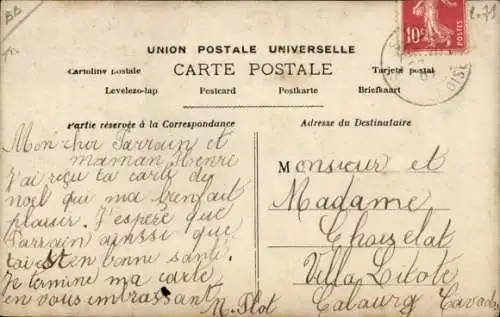 BB
UNION POSTALE UNIVERSELLE
Cartolina postale CARTE POSTALE Tarjeta postal
Levelezo-lap Postcard Postkarte Briefkaart
Partie réservée à la Correspondance
Mon cher Parrain et
maman Henri
J'ai reçu ta carte de
noel qui ma bienfait
plaisir. J'espère que
Parrain ainssi que
tai est en bonne santé.
Je termine ma carte
en vous embrassant
M. Plot
10c
OISE
Adresse du Destinataire
Monsieur et
Madame
Choiselat
Villa Litote
Cabourg Cavados